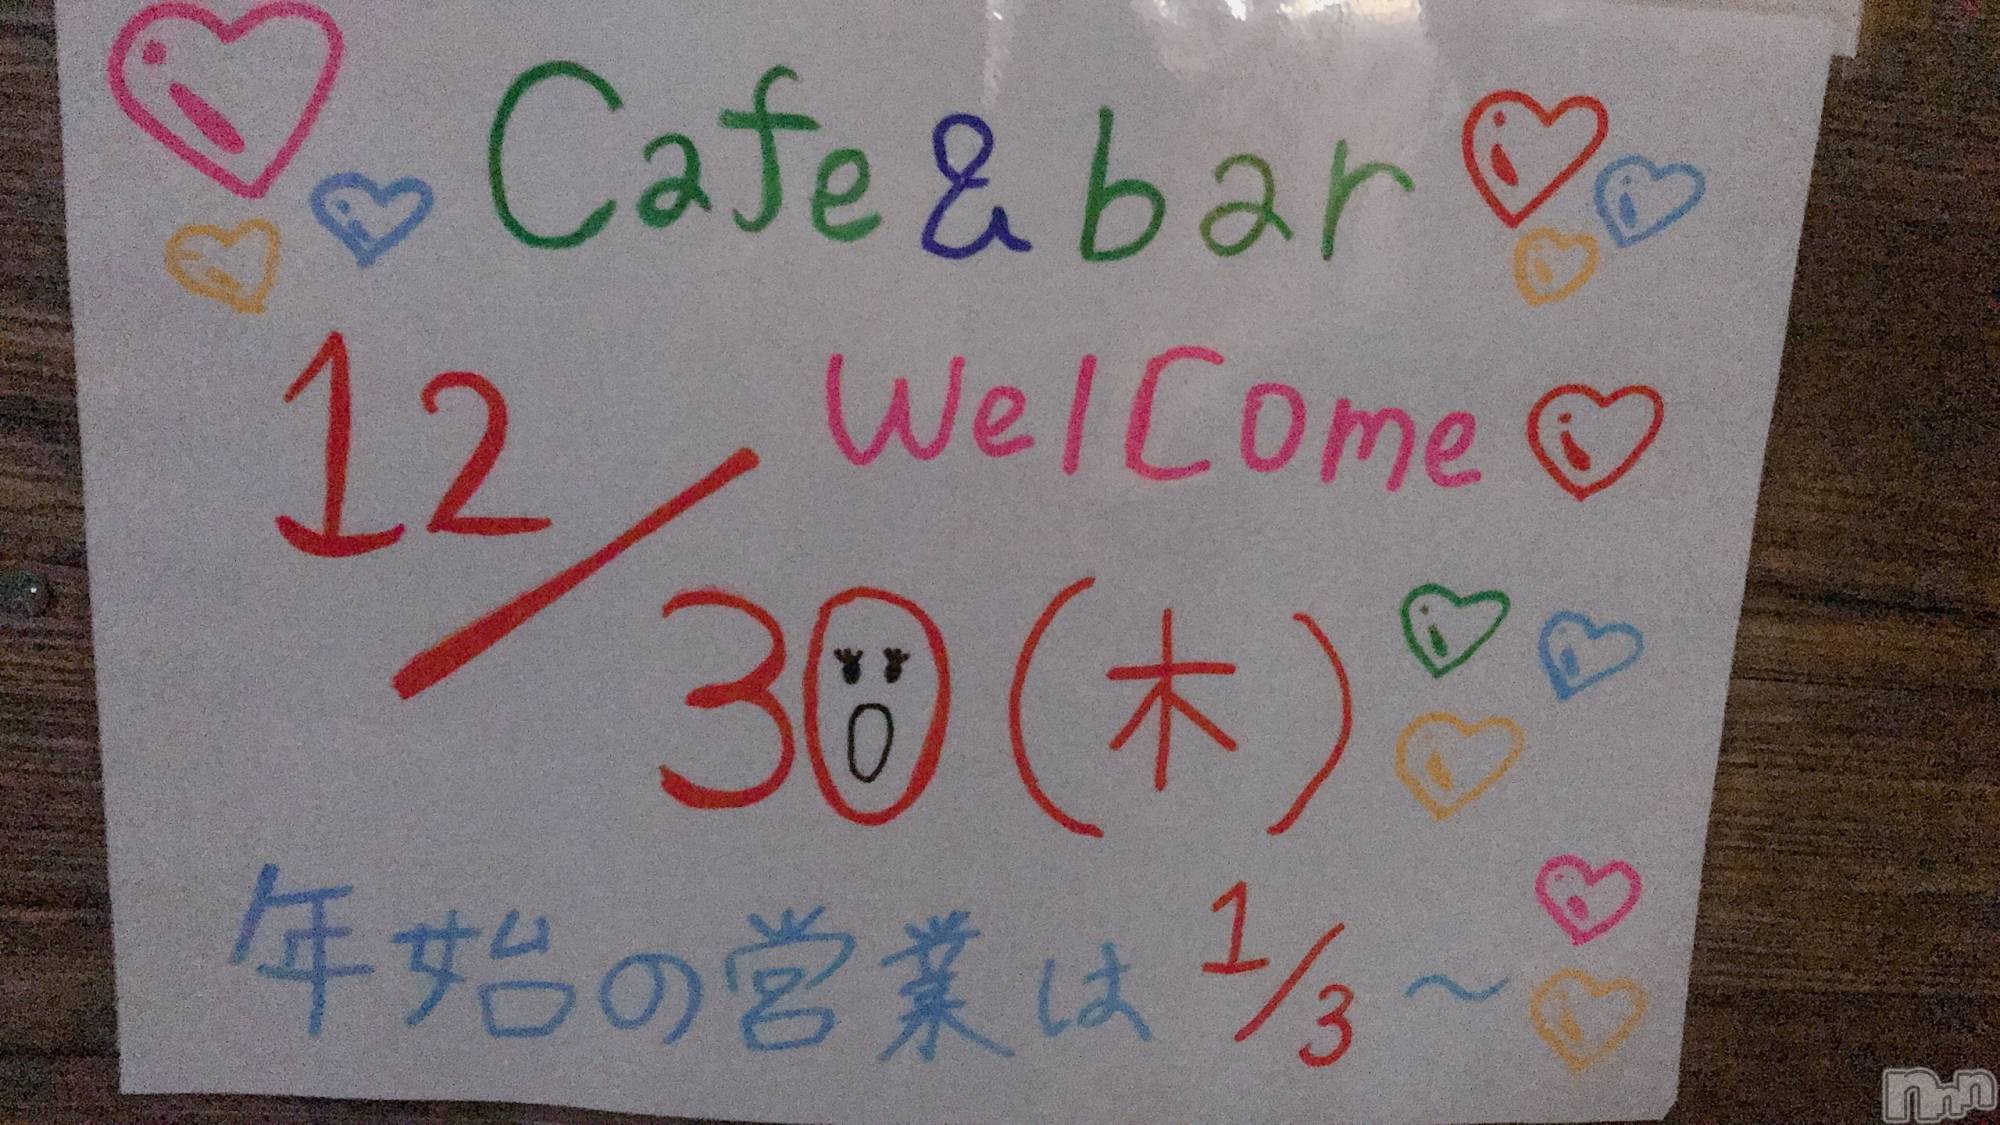 Cafe & bar
Welcome
12/30(木)
年始の営業は 1/3〜